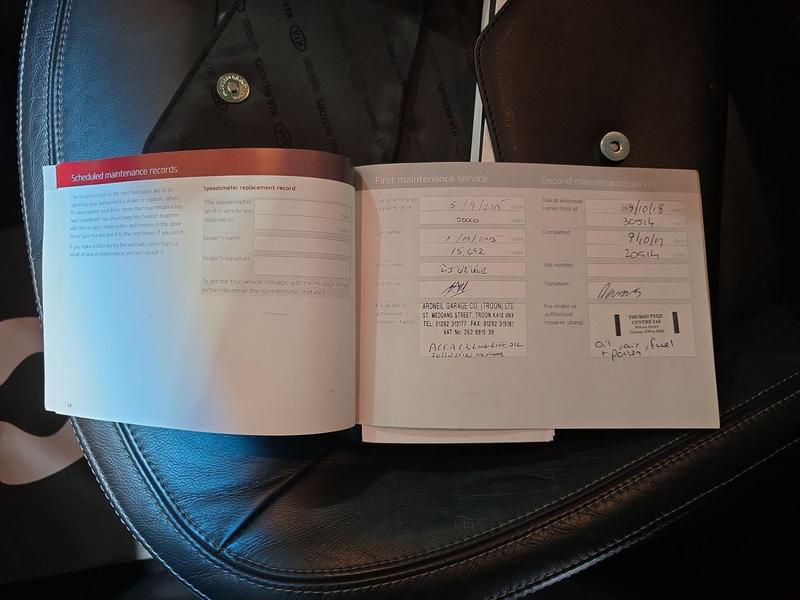 KIA MOTORS
KIA
Scheduled maintenance records
The service records on the next few pages are to be
signed by your authorised Kia dealer or repairer. When
it's been signed, each item shows that maintenance has
been completed. You should keep this booklet together
with the receipts, repair orders and invoices in the glove
box of your Kia and give it to the next owner if you sell it.
If you make a claim during the warranty term that's a
result of lack of maintenance, we can't accept it.
Speedometer replacement record
The speedometer
on this vehicle was
replaced on:
date
miles
Dealer's name:
Dealer's signature:
To get the true vehicle mileage, add the mileage above
to the mileage on the speedometer installed.
14
First maintenance service
Due at whichever
comes first of:
5/9/2015 date
20000 miles
Completed:
1/10/2015 date
15,692 miles
Job number:
Signature:
Kia dealer or
authorised
repairer stamp:
ARDNEIL GARAGE CO. (TROON) LTD
ST. MEDDANS STREET, TROON KA10 6NX
TEL: 01292 313177 FAX: 01292 315181
VAT No 262 8815 39
ACEA C3 Long Life OIL
Second maintenance service
Due at whichever
comes first of:
9/10/18 date
30514 miles
Completed:
9/10/17 date
20514 miles
Job number:
Signature:
Kia dealer or
authorised
repairer stamp:
THURSO TYRE
CENTRE Ltd
Oil, air, fuel
+ pollen